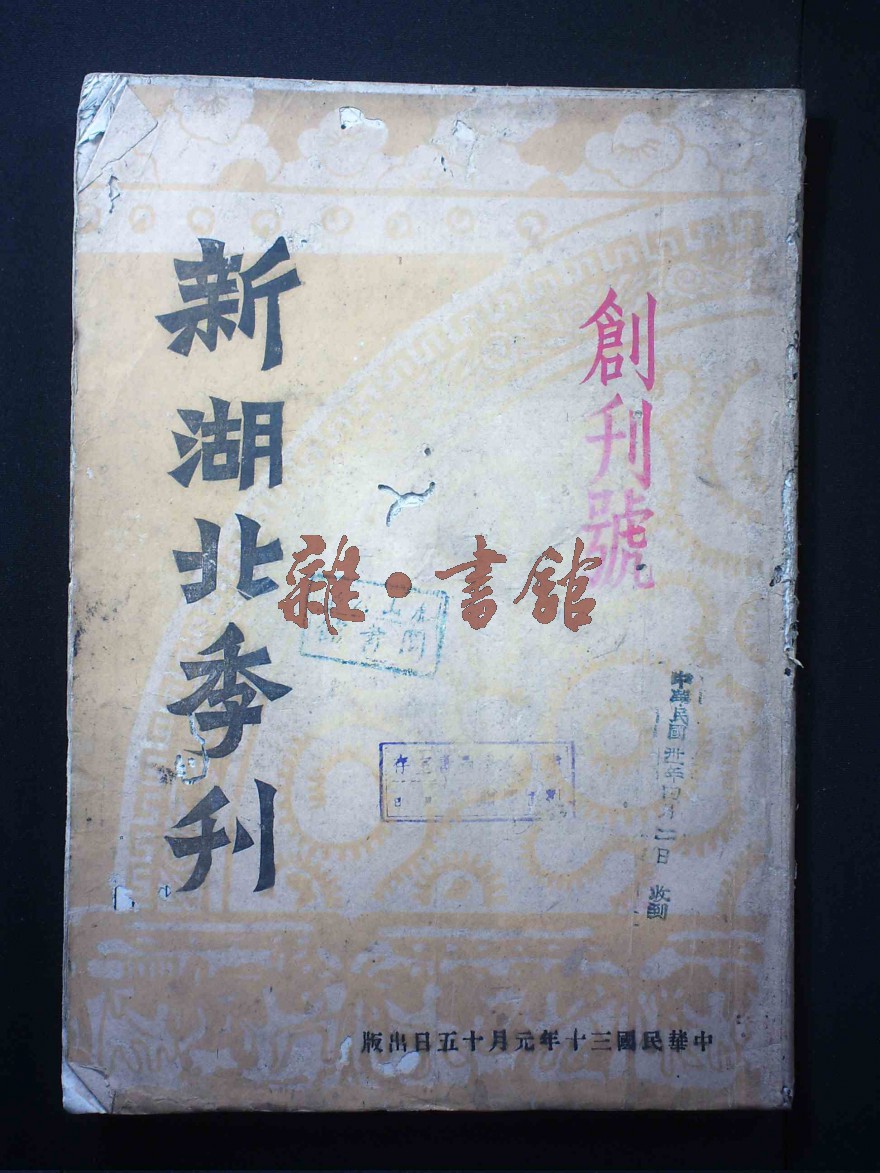 創刊號
新湖北季刊
雜·書館
中華民國卅年四月二日收到
中華民國三十年元月十五日出版